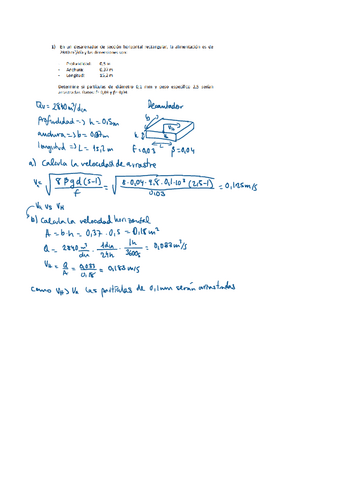 1) En un desarenador de sección horizontal rectangular, la alimentación es de
- Profundidad 0,5 m
- Anchura 0,37 m
- Longitud 15,2 m
Determine si partículas de diámetro 0,1 mm y peso específico 2,5 serían
Qv = 2840 m³/día Decantador
profundidad => h = 0,5m
anchura => b = 0,37m
longitud => L = 15,2 m f = 0,03 β = 0,04
a) Calcula la velocidad de arrastre
V = √(8 β g d (s-1) / f) = √(8 · 0,04 · 9,8 · 0,1·10⁻³ (2,5-1) / 0,03) = 0,125 m/s
b) Calcula la velocidad horizontal
A = b · h = 0,37 · 0,5 = 0,18 m²
Q = 2840 m³/día · 1día/24h · 1h/3600s = 0,033 m³/s
= Q/A = 0,033/0,18 = 0,183 m/s
como las partículas de 0,1mm serán arrastradas